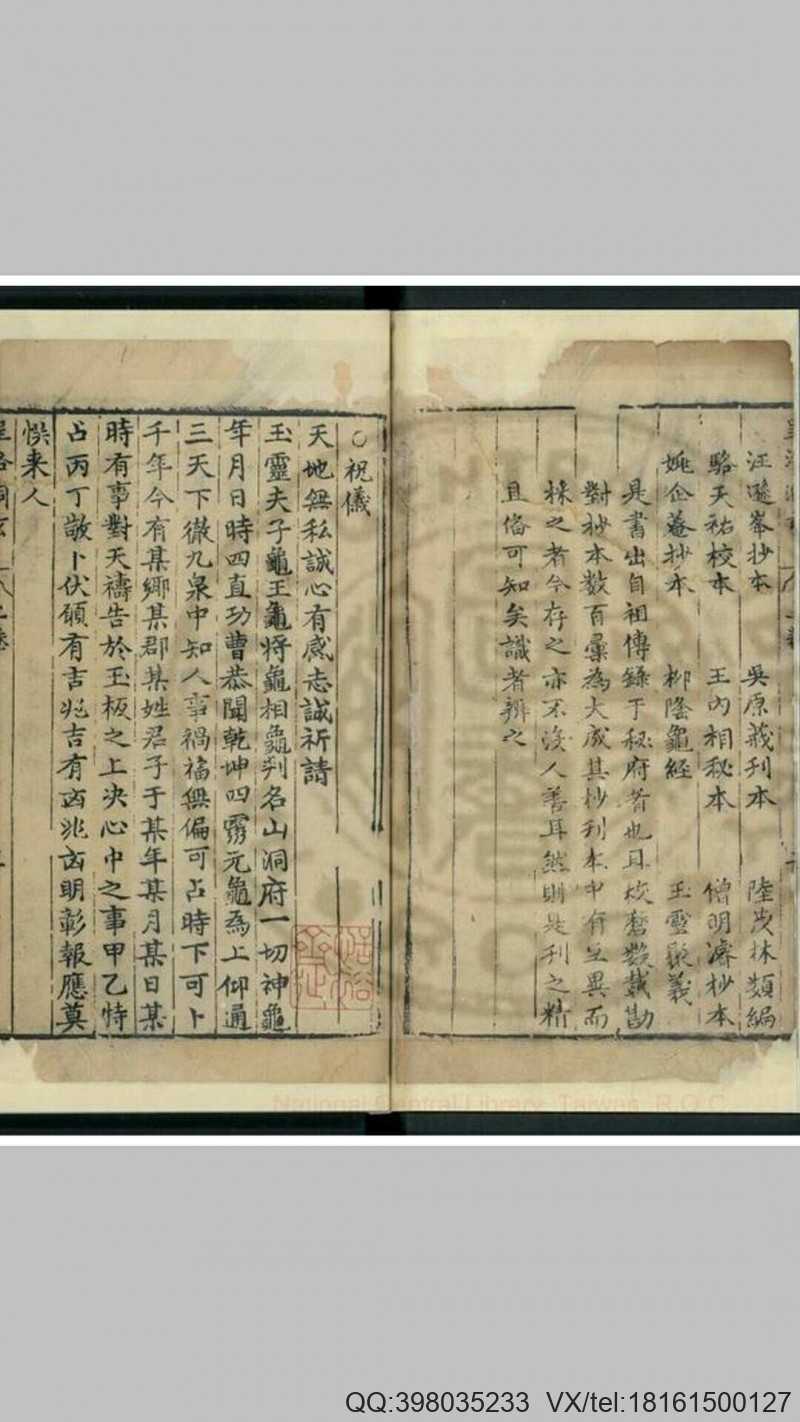 汪㠓峯抄本　吳原義刋本　陸茂林類編
駱天祐校本　王內相秘本　僧明濬抄本
姚企菴抄本　柳隂龜經　玉靈聚義
是書出自祖傳錄于秘府者也且
對抄本数百彙為大成其抄刋本中有
採之者今存之亦不沒人善耳然則是刋之精
且俻可知矣識者辨之
○祝儀
天地無私誠心有感志誠祈請
玉靈夫子龜王龜將龜相龜判名山洞府一切神龜
年月日時四直功曹恭聞乾坤四霛元龜為上仰通
三天下徹九泉中知人事禍福無偏可占時下可卜
千年今有某鄉某郡某姓君子于某年某月某日某
時有事對天禱告於玉板之上决心中之事甲乙恃
占丙丁敬卜伏願有吉兆吉有凶兆凶明彰報應莫
悞来人
National Central Library, Taiwan, R.O.C
QQ:398035233 VX/tel:18161500127